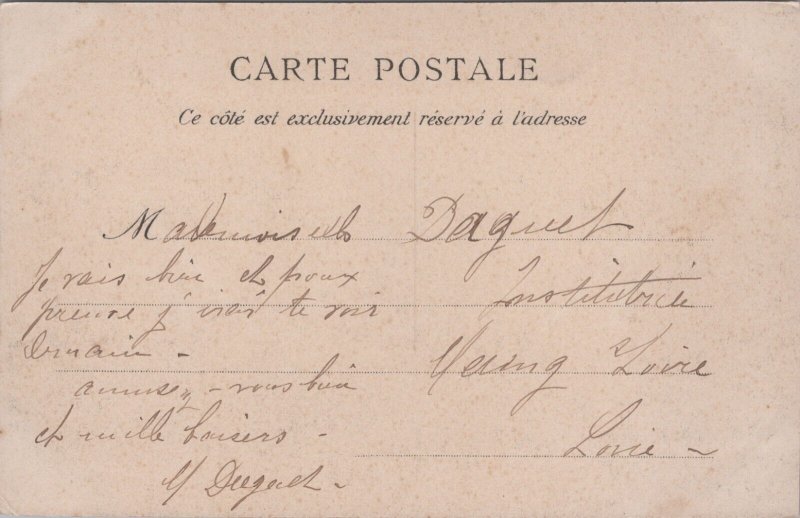 CARTE POSTALE
Ce côté est exclusivement réservé à l'adresse
Mademoiselle Daguet
Institutrice
Loire
Loire -
Je vais bien et pour
preuve j'irai te voir
Demain -
amusez-vous bien
et mille baisers -